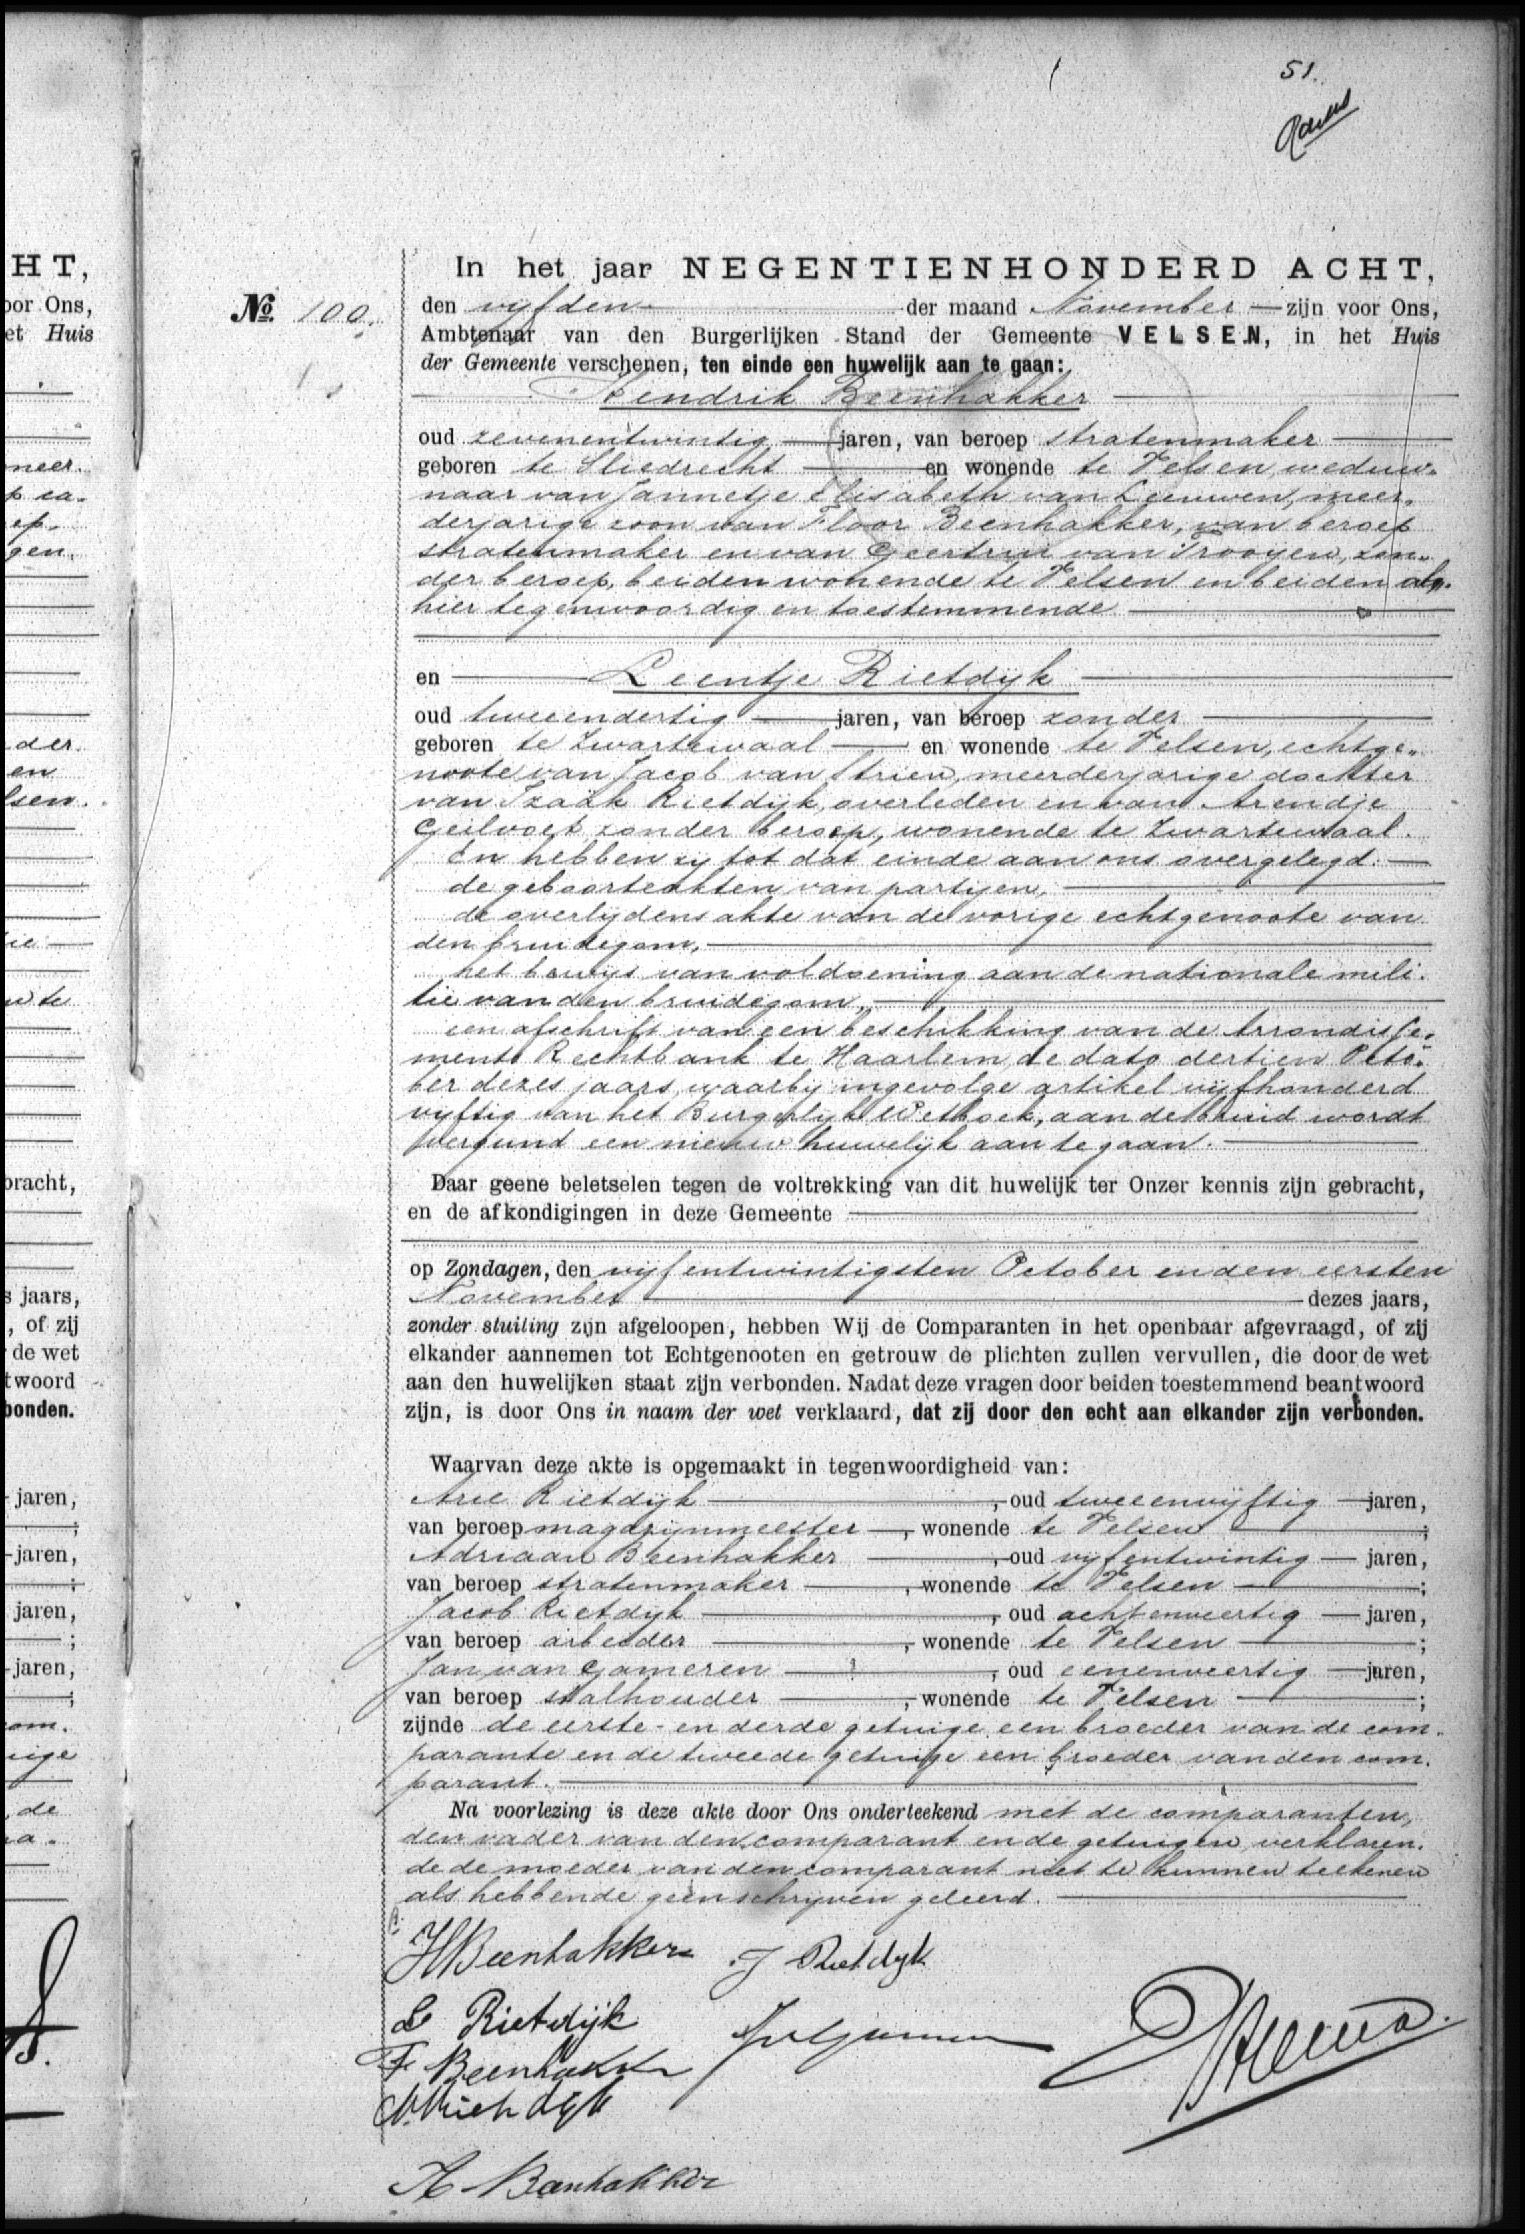 51.
No. 100.
In het jaar NEGENTIENHONDERD ACHT,
den vijfden der maand November zijn voor Ons,
Ambtenaar van den Burgerlijken Stand der Gemeente VELSEN, in het Huis
der Gemeente verschenen, ten einde een huwelijk aan te gaan:
Hendrik Beenhakker
oud zevenentwintig jaren, van beroep stratenmaker
geboren te Sliedrecht en wonende te Velsen, weduw-
naar van Jannetje Elisabeth van Leeuwen, meer-
derjarige zoon van Floor Beenhakker, van beroep
stratenmaker en van Geertrui van Trooyen, zon-
der beroep, beiden wonende te Velsen en beiden al-
hier tegenwoordig en toestemmende
en Leentje Rietdijk
oud tweeendertig jaren, van beroep zonder
geboren te Zwartewaal en wonende te Velsen, echtge-
noote van Jacob van Strien, meerderjarige dochter
van Izaäk Rietdijk, overleden en van Arendje
Geilvoet, zonder beroep, wonende te Zwartewaal.
En hebben zij tot dat einde aan ons overgelegd:
de geboorteakten van partijen,
de overlijdensakte van de vorige echtgenoote van
den bruidegom,
het bewijs van voldoening aan de nationale mili-
tie van den bruidegom,
een afschrift van een beschikking van de Arrondisse-
ments Rechtbank te Haarlem, de dato dertien Octo-
ber dezes jaars, waarbij ingevolge artikel vijfhonderd
vijftig van het Burgerlijk Wetboek, aan de bruid wordt
vergund een nieuw huwelijk aan te gaan.
Daar geene beletselen tegen de voltrekking van dit huwelijk ter Onzer kennis zijn gebracht,
en de afkondigingen in deze Gemeente
op Zondagen, den vijfentwintigsten October en den eersten
November dezes jaars,
zonder stuiting zijn afgeloopen, hebben Wij de Comparanten in het openbaar afgevraagd, of zij
elkander aannemen tot Echtgenooten en getrouw de plichten zullen vervullen, die door de wet
aan den huwelijken staat zijn verbonden. Nadat deze vragen door beiden toestemmend beantwoord
zijn, is door Ons in naam der wet verklaard, dat zij door den echt aan elkander zijn verbonden.
Waarvan deze akte is opgemaakt in tegenwoordigheid van:
Arie Rietdijk, oud tweeenvijftig jaren,
van beroep magazijnmeester, wonende te Velsen;
Adriaan Beenhakker, oud vijfentwintig jaren,
van beroep stratenmaker, wonende te Velsen;
Jacob Rietdijk, oud achtenveertig jaren,
van beroep arbeider, wonende te Velsen;
Jan van Gameren, oud eenenveertig jaren,
van beroep stalhouder, wonende te Velsen;
zijnde de eerste- en derde getuige een broeder van de com-
parante en de tweede getuige een broeder van den com-
parant.
Na voorlezing is deze akte door Ons onderteekend met de comparanten,
den vader van den comparant en de getuigen, verklaren-
de de moeder van den comparant niet te kunnen teekenen
als hebbende geen schrijven geleerd.
HBeenhakker J Rietdyk
L Rietdijk
F Beenhakker
A Rietdijk
A Beenhakker
HT,
oor Ons,
et Huis
neer.
der.
en
lsen.
bracht,
s jaars,
, of zij
de wet
twoord
bonden.
jaren,
jaren,
jaren,
jaren,